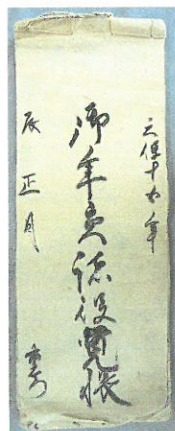 天保十五年
御年貢諸役覚帳
辰正月